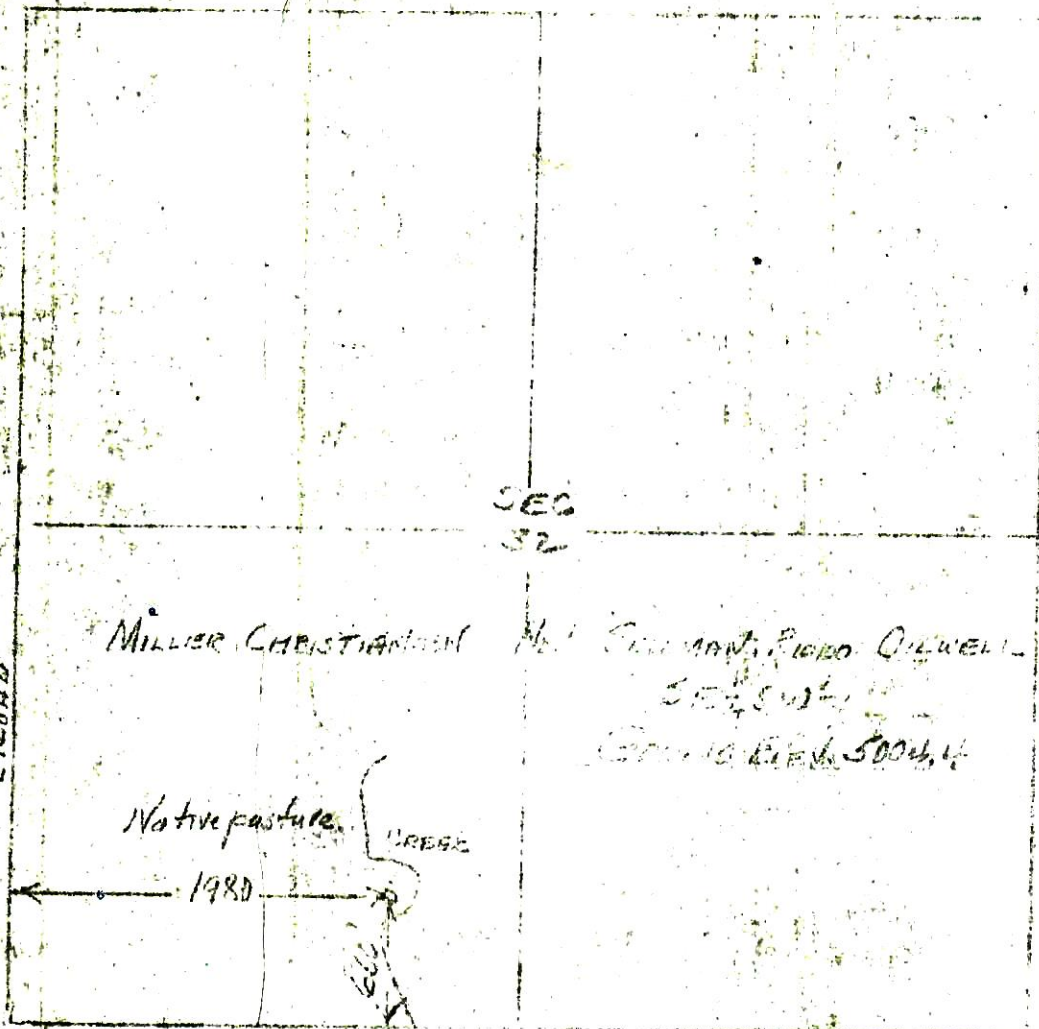 SEC
32
MILLER CHRISTIANSEN No 1
OILWELL
SE¼ SW¼
GROUND ELEV. 5004.4
Native pasture
CREEK
1980
660'